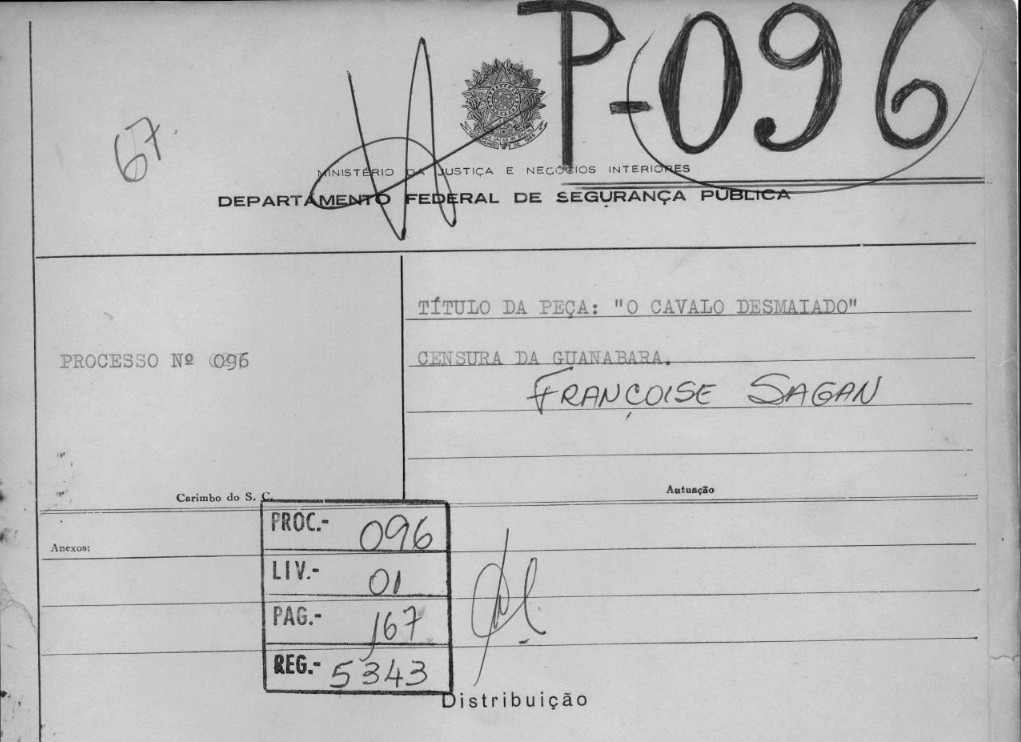 P-096
67
MINISTÉRIO DA JUSTIÇA E NEGÓCIOS INTERIORES
DEPARTAMENTO FEDERAL DE SEGURANÇA PÚBLICA
TÍTULO DA PEÇA: "O CAVALO DESMAIADO"
PROCESSO Nº 096
CENSURA DA GUANABARA.
FRANÇOISE SAGAN
Carimbo do S. C.
Autuação
Anexos:
PROC.- 096
LIV.- 01
PAG.- 167
REG.- 5343
Distribuição